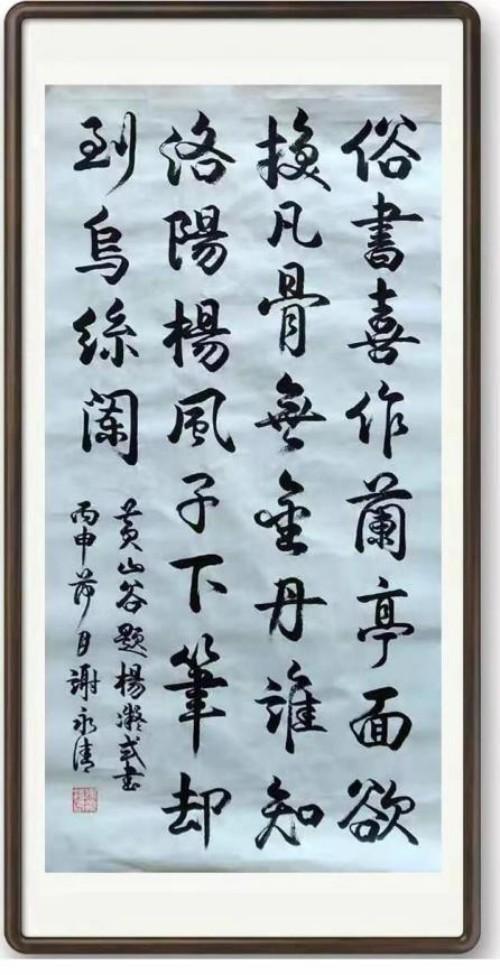 俗書喜作蘭亭面欲
換凡骨無金丹誰知
洛陽楊風子下筆却
到烏絲闌
黄山谷題楊凝式書
丙申月謝永清